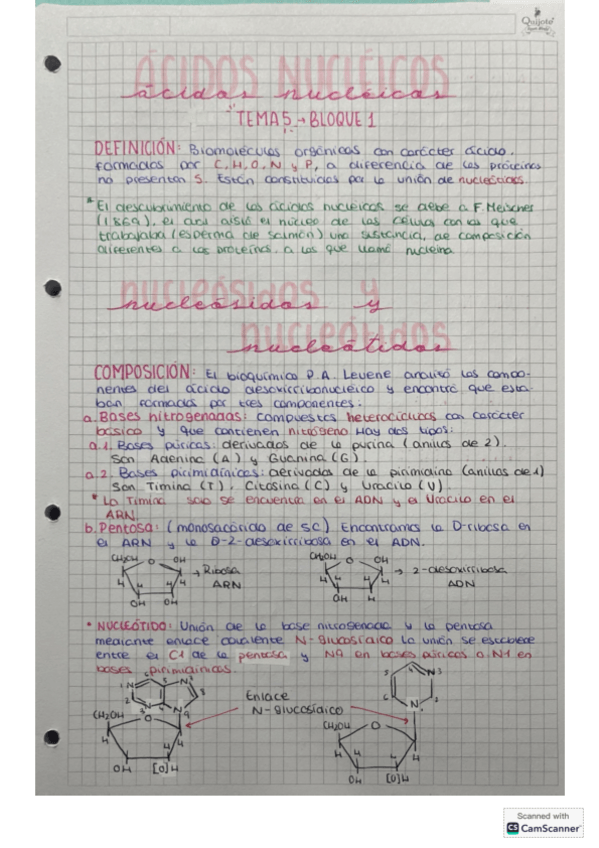 Quijote
ÁCIDOS NUCLÉICOS
ácidos nucléicos
TEMA 5 → BLOQUE 1
DEFINICIÓN: Biomoléculas orgánicas con carácter ácido.
formadas por C, H, O, N y P, a diferencia de las proteínas
no presentan S. Están constituidas por la unión de nucleótidos.
* El descubrimiento de los ácidos nucleicos se debe a F. Meischer
(1869), el cual aisló el núcleo de las células con las que
trabajaba (esperma de salmón) una sustancia, de composición
diferentes a las proteínas, a las que llamó nucleína.
NUCLEÓSIDOS y
nucleósidos
NUCLEÓTIDOS
nucleótidos
COMPOSICIÓN: El bioquímico P.A. Levene analizó los compo-
nentes del ácido desoxirribonucleico y encontró que esta-
ban formados por tres componentes:
a. Bases nitrogenadas: compuestos heterocíclicos con carácter
básico y que contienen nitrógeno Hay dos tipos:
a.1. Bases púricas: derivados de la purina (anillos de 2).
Son Adenina (A) y Guanina (G).
a.2. Bases pirimidínicas: derivados de la pirimidina (anillos de 1)
Son Timina (T), Citosina (C) y Uracilo (U).
* La Timina solo se encuentra en el ADN y el Uracilo en el
ARN.
b. Pentosa: (monosacárido de 5C) Encontramos la D-ribosa en
el ARN y la D-2-desoxirribosa en el ADN.
CH2OH O OH → Ribosa
H H H H ARN
OH OH
CH2OH O OH → 2-desoxirribosa
H H H H ADN
OH H
* NUCLEÓTIDO: Unión de la base nitrogenada y la pentosa
mediante enlace covalente N-glucosídico La unión se establece
entre el C1 de la pentosa y N9 en bases púricas o N1 en
bases pirimidínicas.
Enlace
N-glucosídico
CH2OH O
H H H H
OH [O]H
CH2OH O
H H H H
OH [O]H
Scanned with
CS CamScanner